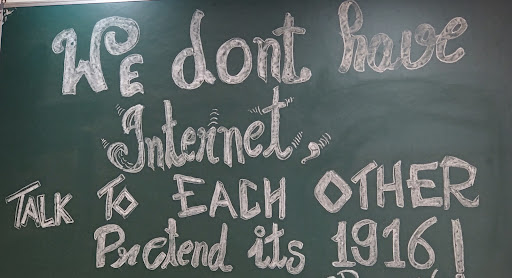 WE dont have
Internet,
TALK TO EACH OTHER
Pretend its 1916!